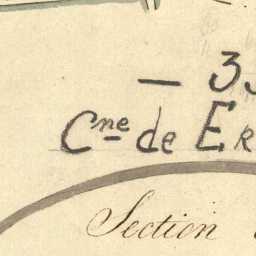 — 3
Cne de Er
Section